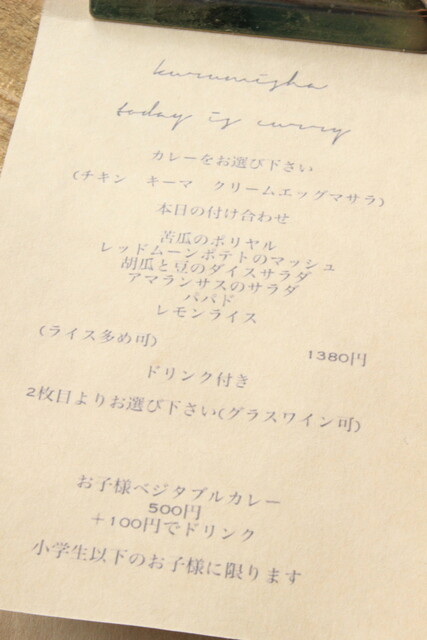 kurumisha
today is curry
カレーをお選び下さい
(チキン　キーマ　クリームエッグマサラ)
本日の付け合わせ
苦瓜のポリヤル
レッドムーンポテトのマッシュ
胡瓜と豆のダイスサラダ
アマランサスのサラダ
パパド
レモンライス
(ライス多め可)
1380円
ドリンク付き
2枚目よりお選び下さい(グラスワイン可)
お子様ベジタブルカレー
500円
＋100円でドリンク
小学生以下のお子様に限ります